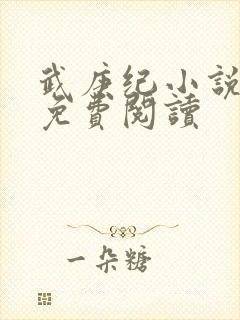 武庚纪小説
免費閱讀
一朵糖